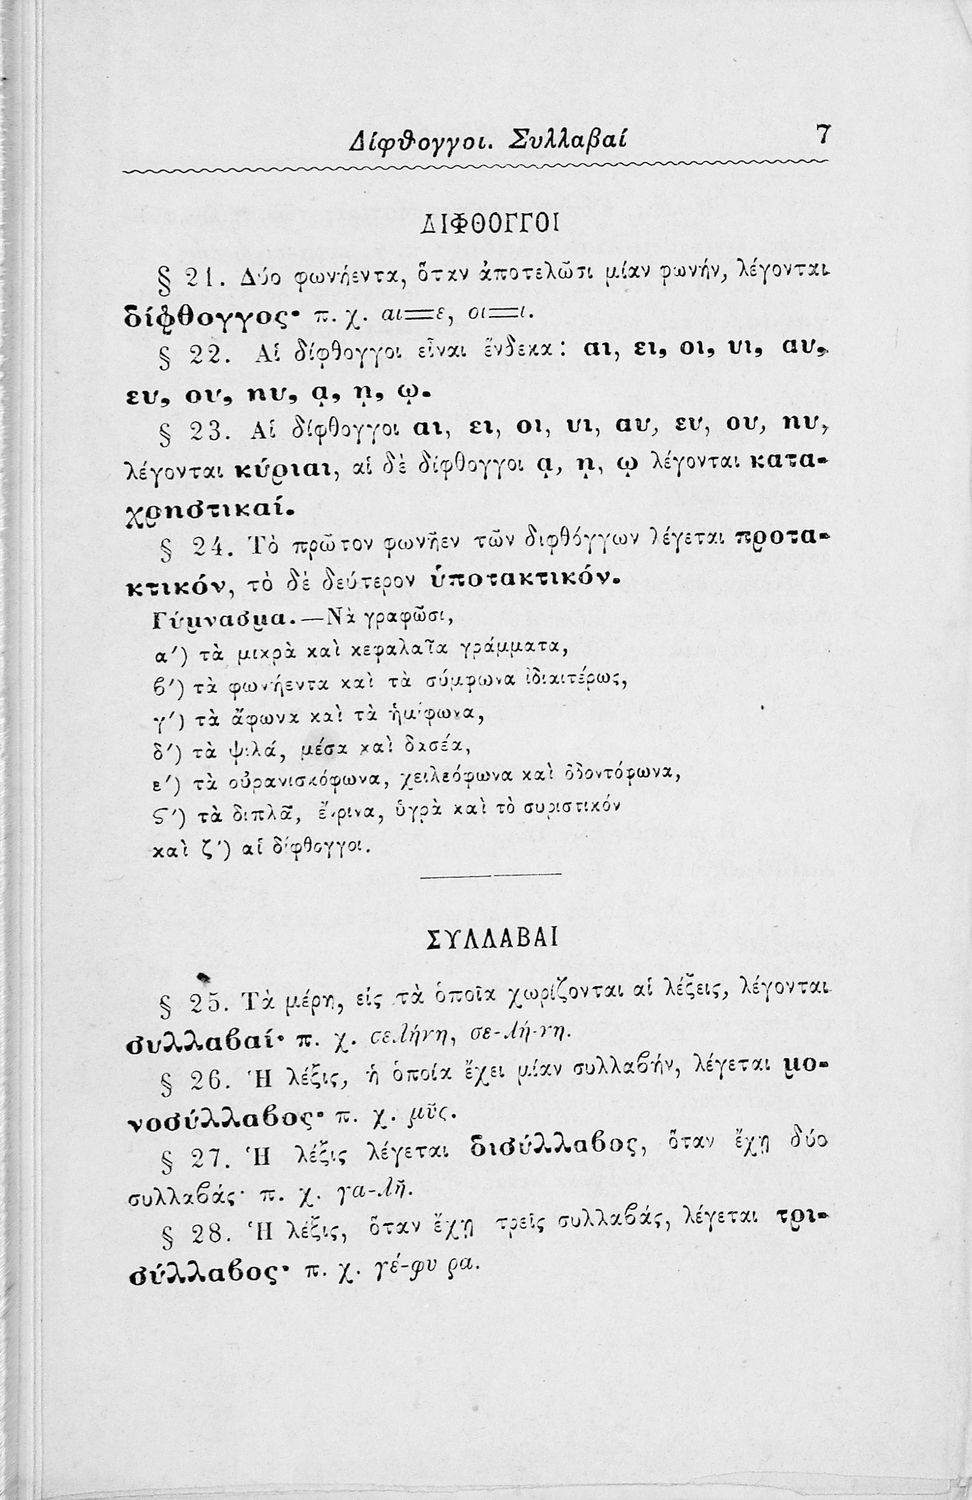 Δίφθογγοι. Συλλαβαί 7
ΔΙΦΘΟΓΓΟΙ
§ 21. Δύο φωνήεντα, ὅταν ἀποτελῶσι μίαν φωνήν, λέγονται
δίφθογγος· π. χ. αι=ε, οι=ι.
§ 22. Αἱ δίφθογγοι εἶναι ἕνδεκα: αι, ει, οι, υι, αυ,
ευ, ου, ηυ, ᾳ, ῃ, ῳ.
§ 23. Αἱ δίφθογγοι αι, ει, οι, υι, αυ, ευ, ου, ηυ,
λέγονται κύριαι, αἱ δὲ δίφθογγοι ᾳ, ῃ, ῳ λέγονται κατα-
χρηστικαί.
§ 24. Τὸ πρῶτον φωνῆεν τῶν διφθόγγων λέγεται προτα-
κτικόν, τὸ δὲ δεύτερον ὑποτακτικόν.
Γύμνασμα.—Νὰ γραφῶσι,
α′) τὰ μικρὰ καὶ κεφαλαῖα γράμματα,
β′) τὰ φωνήεντα καὶ τὰ σύμφωνα ἰδιαιτέρως,
γ′) τὰ ἄφωνα καὶ τὰ ἡμίφωνα,
δ′) τὰ ψιλά, μέσα καὶ δασέα,
ε′) τὰ οὐρανισκόφωνα, χειλεόφωνα καὶ ὀδοντόφωνα,
ϛ′) τὰ διπλᾶ, ἔνρινα, ὑγρὰ καὶ τὸ συριστικόν
καὶ ζ′) αἱ δίφθογγοι.
ΣΥΛΛΑΒΑΙ
§ 25. Τὰ μέρη, εἰς τὰ ὁποῖα χωρίζονται αἱ λέξεις, λέγονται
συλλαβαί· π. χ. σελήνη, σε-λή-νη.
§ 26. Ἡ λέξις, ἡ ὁποία ἔχει μίαν συλλαβήν, λέγεται μο-
νοσύλλαβος· π. χ. μῦς.
§ 27. Ἡ λέξις λέγεται δισύλλαβος, ὅταν ἔχῃ δύο
συλλαβάς· π. χ. γα-λῆ.
§ 28. Ἡ λέξις, ὅταν ἔχῃ τρεῖς συλλαβάς, λέγεται τρι-
σύλλαβος· π. χ. γέ-φυ ρα.